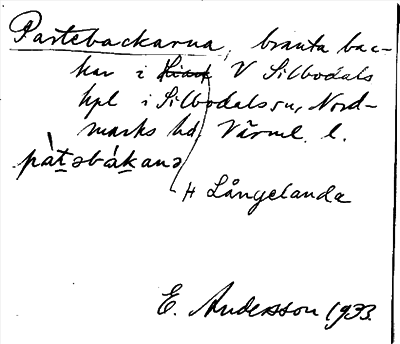 Partebackarna, branta bac-
kar i V Silbodals
kpl i Silbodals sn, Nord-
marks hd Värml. l.
pàt̠əbák̠anə
H Långelanda
E. Andersson 1933.